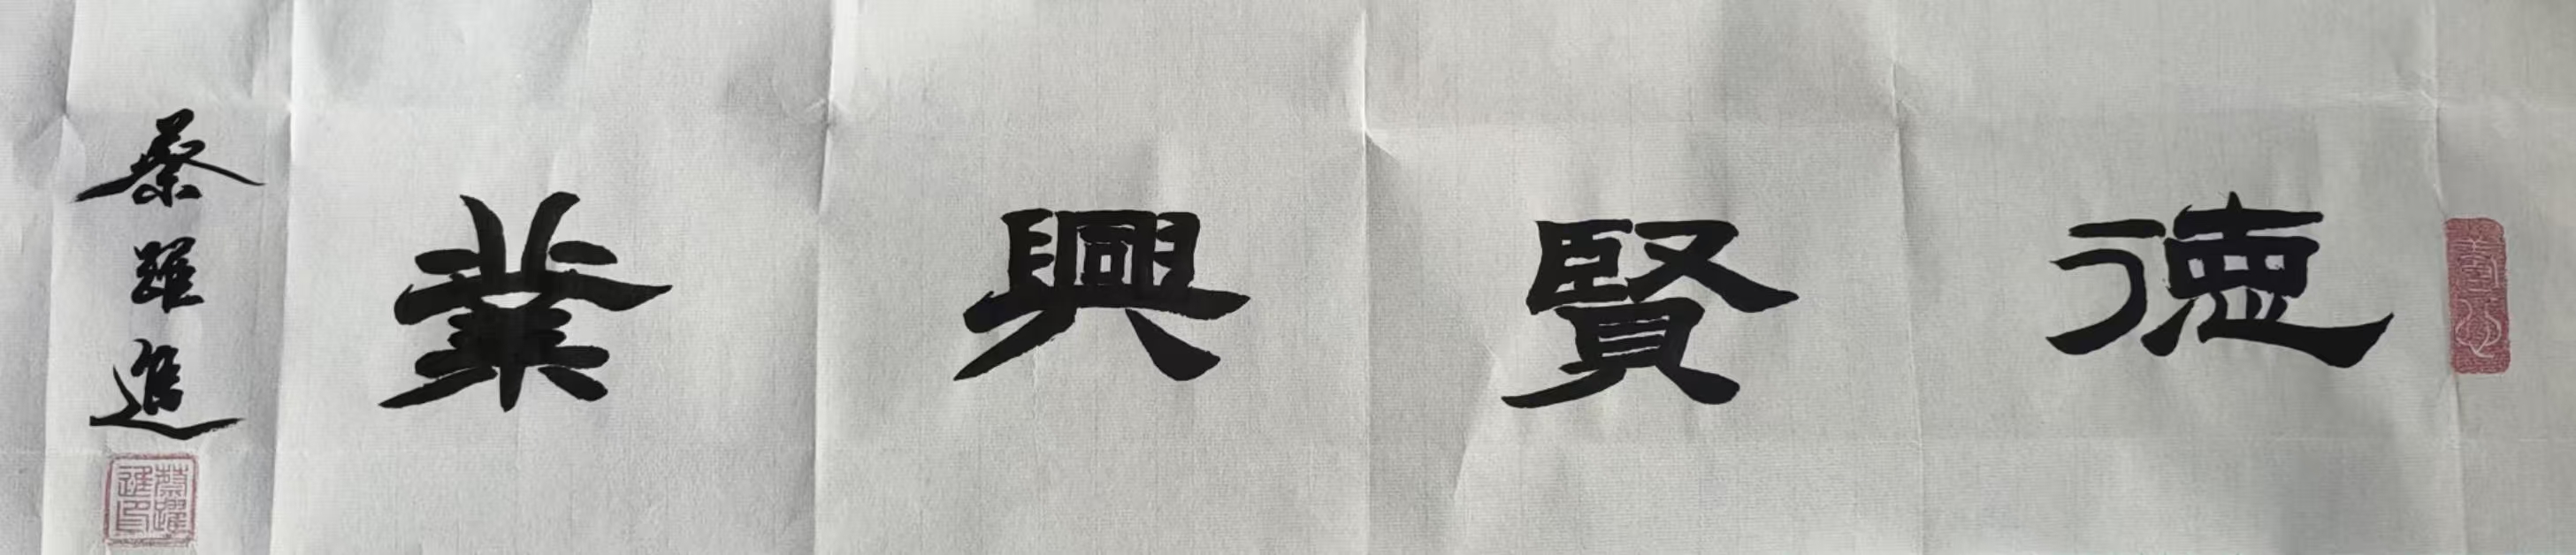 德賢興業
蔡躍進
蔡躍進印